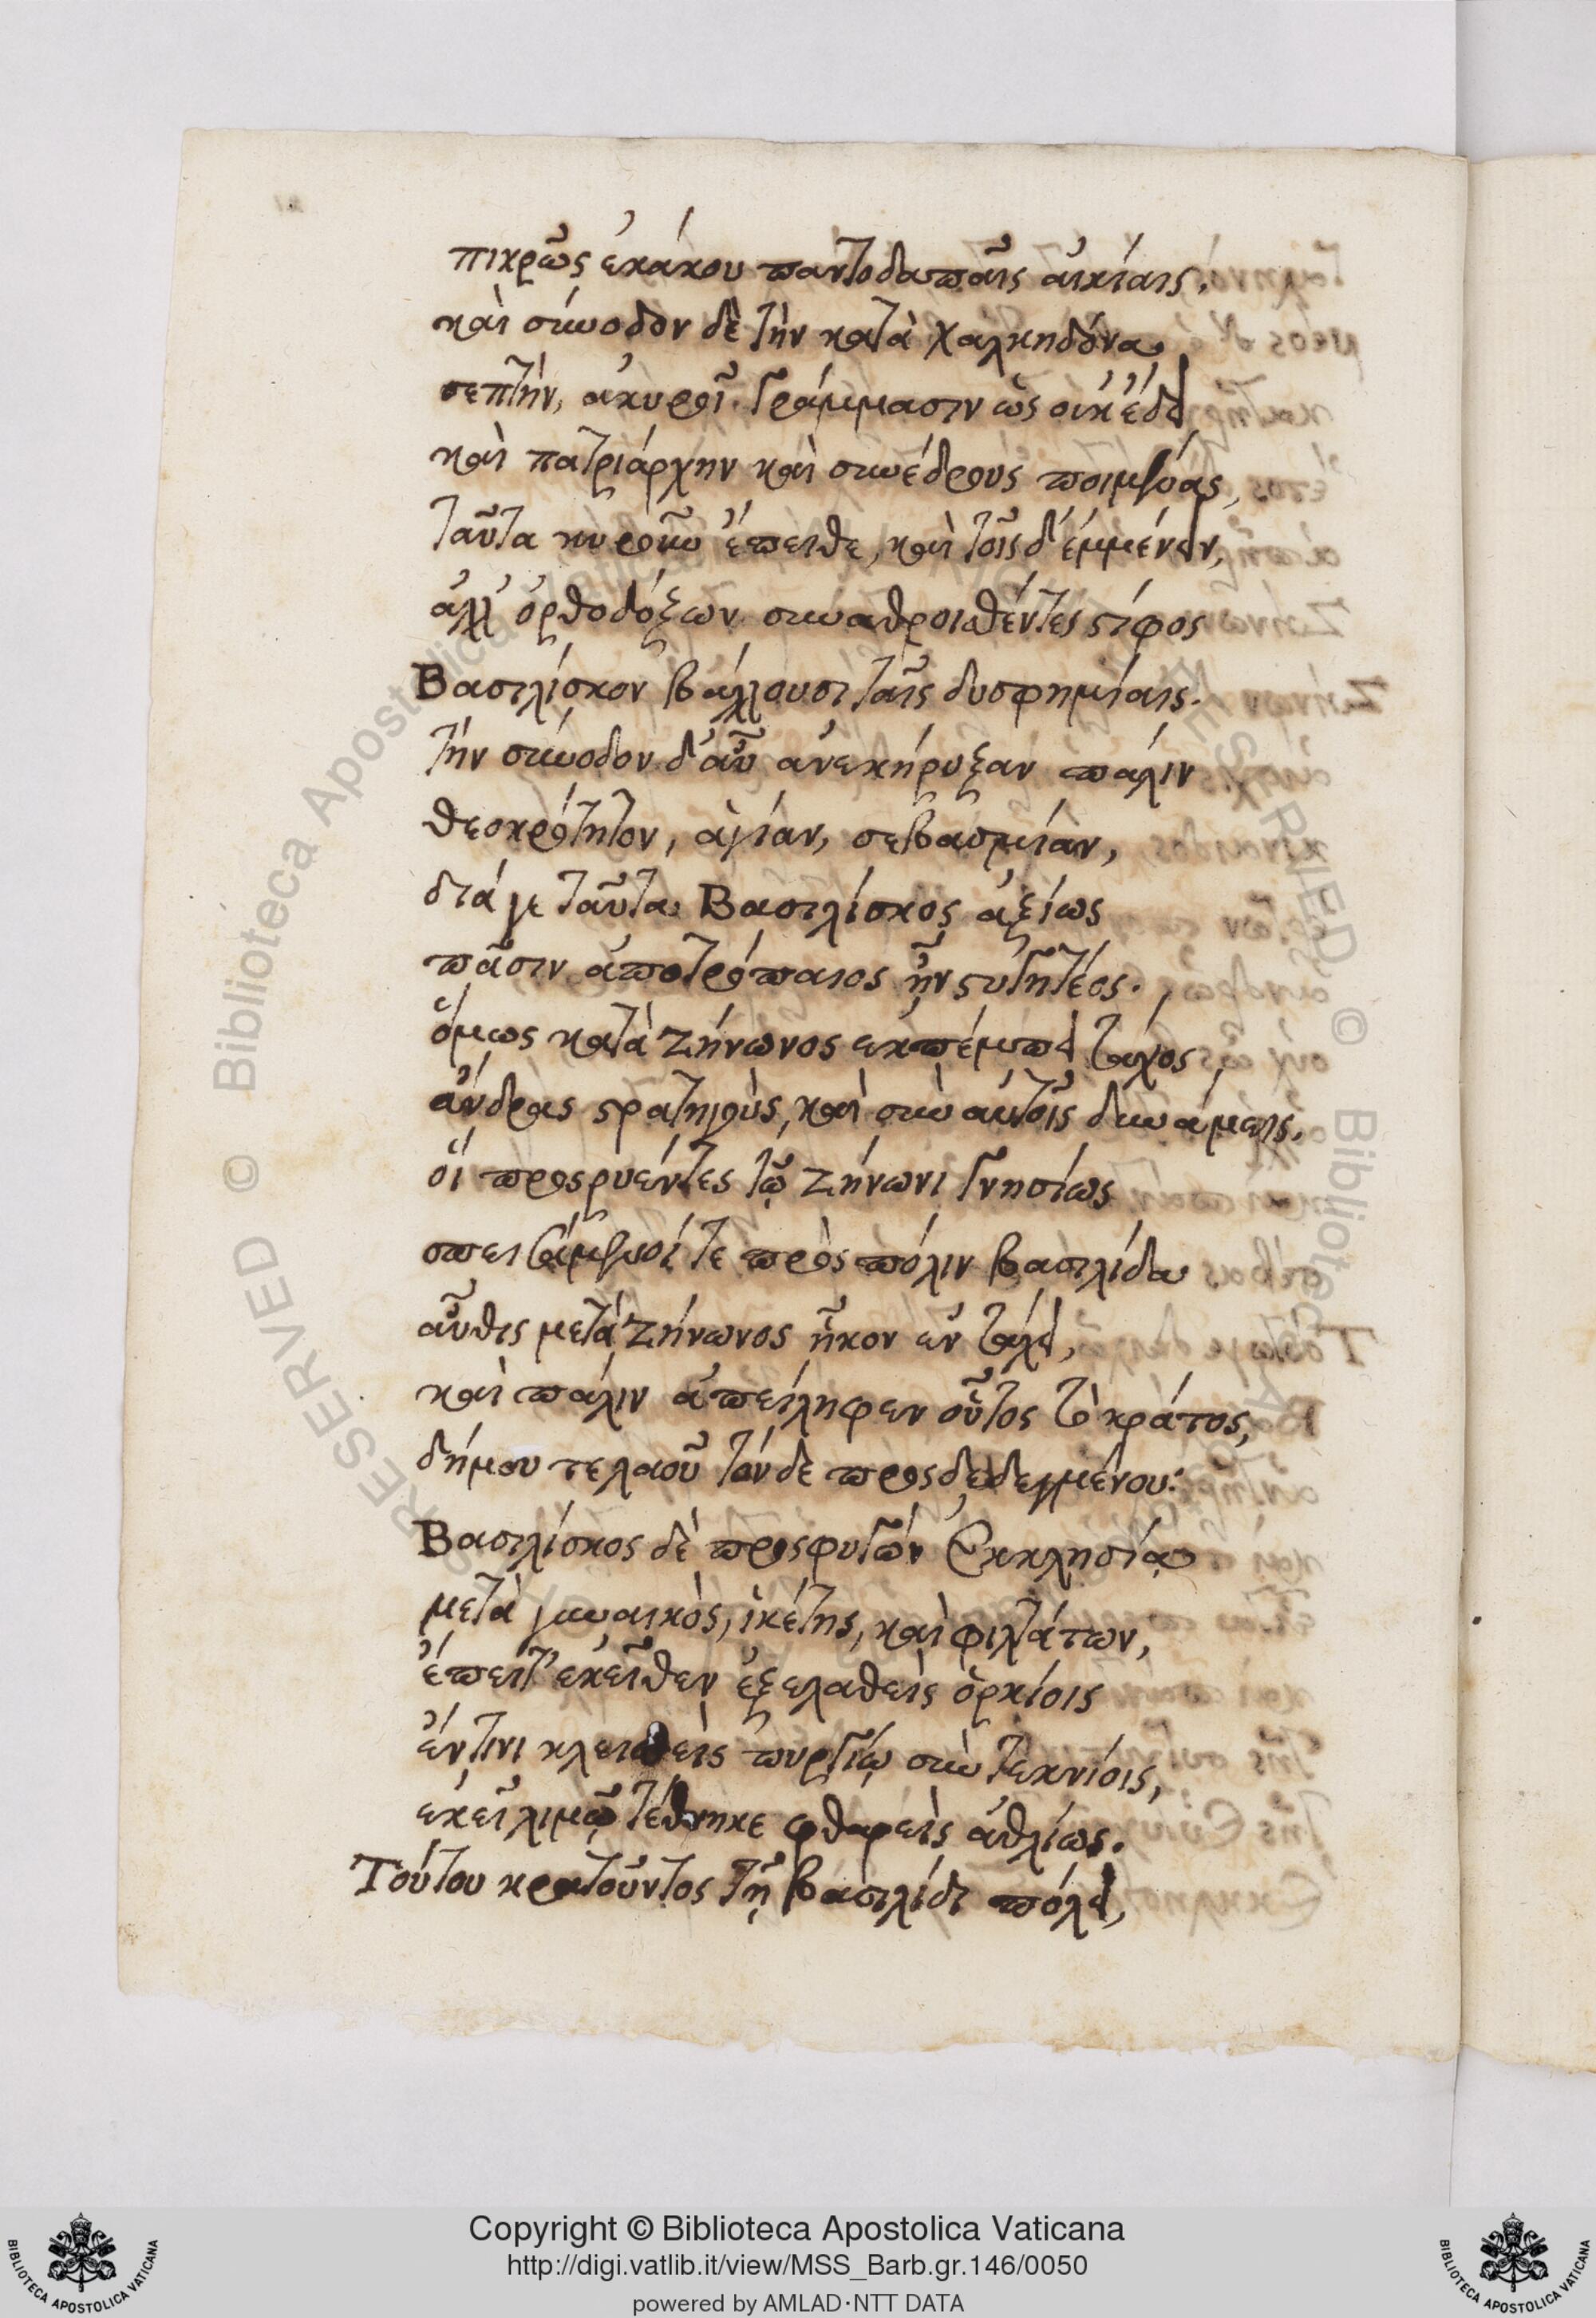 πικρῶς ἐκάκου παντοδαπαῖς αἰκίαις.
καὶ σύνοδον δὲ τὴν κατὰ χαλκηδόνα
σεπτὴν, ἀκυροῖ γράμμασιν ὡς οὐκ ἔδει
καὶ πατριάρχην καὶ συνέδρους ποιμένας,
ταῦτα κυροῦν ἔπειθε, καὶ τοῖς δ' ἐμμένειν,
ἀλλ' ὀρθοδόξων συναθροισθέντες στίφος
Βασιλίσκον βάλλουσι ταῖς δυσφημίαις.
τὴν σύνοδον δ' αὖ ἀνεκήρυξαν πάλιν
θεοκρότητον, ἁγίαν, σεβασμίαν,
διά γε ταῦτα Βασιλίσκος ἀξίως
πᾶσιν ἀποτρόπαιος ἦν στυγητέος.
ὅμως κατὰ Ζήνωνος ἐκπέμπει τάχος
ἄνδρας στρατηγοὺς, καὶ σὺν αὐτοῖς δυνάμεις.
οἳ προσρυέντες τῷ Ζήνωνι γνησίως
σπεισάμενοί τε πρὸς πόλιν βασιλίδα
αὖθις μετὰ Ζήνωνος ἧκον ἐν τάχει,
καὶ πάλιν ἀπείληφεν οὗτος τὸ κράτος,
δήμου τε λαοῦ τόνδε προσδεδεγμένου:
Βασιλίσκος δὲ προσφυγὼν Ἐκκλησίᾳ
μετὰ γυναικὸς, ἱκέτης, καὶ φιλτάτων,
ἔπειτ' ἐκεῖθεν ἐξελαθεὶς ὁρκίοις
ἔν τινι κλεισθεὶς πυργίῳ σὺν τεκνίοις,
ἐκεῖ λιμῷ τέθνηκε φθαρεὶς ἀθλίως.
Τούτου κρατοῦντος τῇ βασιλίδι πόλει,
Copyright © Biblioteca Apostolica Vaticana
http://digi.vatlib.it/view/MSS_Barb.gr.146/0050
powered by AMLAD·NTT DATA